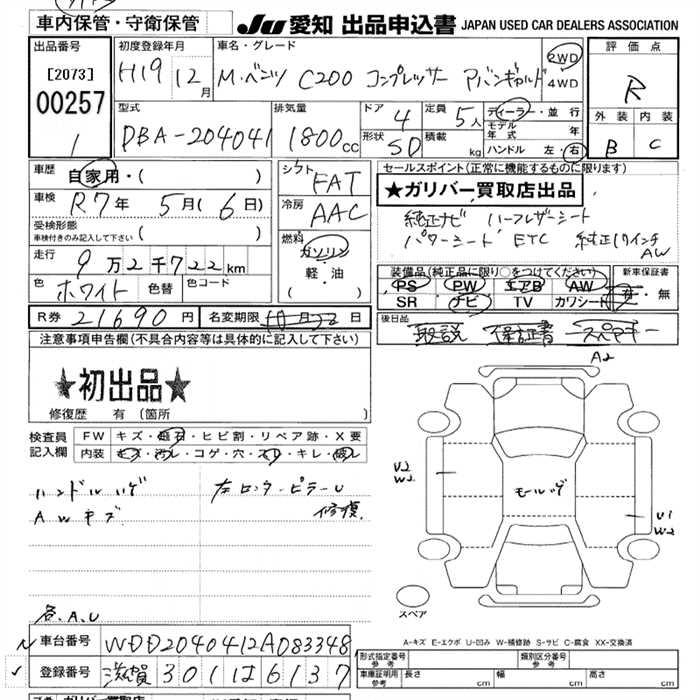 車内保管・守衛保管
JU 愛知 出品申込書 JAPAN USED CAR DEALERS ASSOCIATION
出品番号
[2073]
00257
1
初度登録年月
H19 12月
車名・グレード
M・ベンツ C200 コンプレッサー アバンギャルド
2WD
4WD
評価点
R
外装 内装
B C
型式
DBA-204041
排気量
1800cc
ドア 4
形状 SD
定員 5人
積載 kg
ディーラー・並行
モデル年式 年
ハンドル 左・右
車歴 自家用・( )
車検 R7年 5月(6日)
受検形態
車検付きのみ記入して下さい ( )
走行 9万2千722km
色 ホワイト 色替 色コード
シフト FAT
冷房 AAC
燃料 ガソリン
軽・油
( )
セールスポイント(正常に機能するものに限ります)
★ガリバー買取店出品
純正ナビ ハーフレザーシート
パワーシート ETC 純正17インチ
AW
装備品(純正品に限り○をつけてください)
PS PW エアB AW
SR ナビ TV カワシート
新車保証書
有・無
R券 21690円 名変期限 10月22日
後日品
取説 保証書 スペアキー
注意事項申告欄(不具合内容等は具体的に記入して下さい)
★初出品★
修復歴 有(箇所
検査員
記入欄
FW キズ・飛石・ヒビ割・リペア跡・X要
内装 キズ・汚レ・コゲ・穴・スレ・キレ・破レ
ハンドルハゲ
AWキズ
左センターピラーU
修復
色.A.U
A2
U2
W2
モールハゲ
U1
W2
スペア
A-キズ E-エクボ U-凹み W-補修跡 S-サビ C-腐食 XX-交換済
車台番号 WDD2040412A083348
登録番号 滋賀 301 は 6137
形式指定番号
参考
類別区分番号
参考
車庫証明用
参考
長さ cm 幅 cm 高さ cm
店番 ガリバー買取店